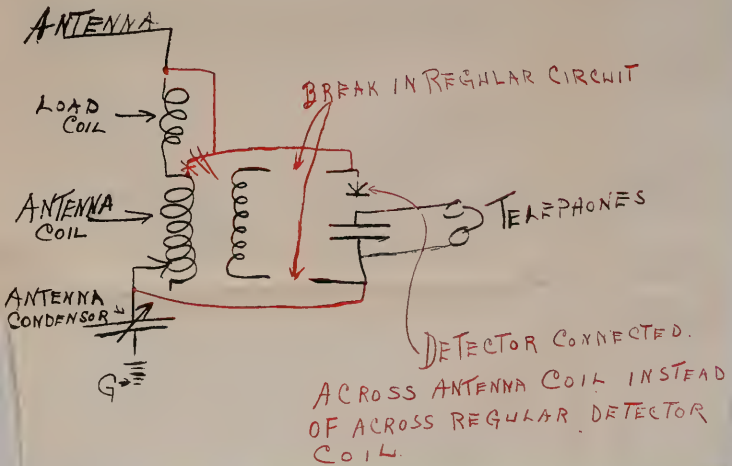 ANTENNA
BREAK IN REGULAR CIRCUIT
LOAD
COIL
ANTENNA
COIL
TELEPHONES
ANTENNA
CONDENSOR
G
DETECTOR CONNECTED.
ACROSS ANTENNA COIL INSTEAD
OF ACROSS REGULAR DETECTOR
COIL.